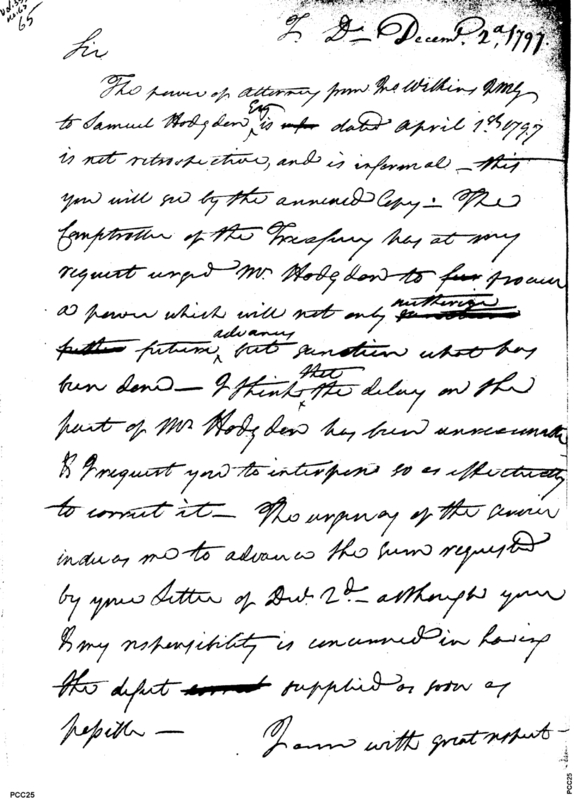 65
T. D. Decemr. 2d, 1797.
Sir
The power of attorney from Mr Wilkins
to Samuel Hodgdon Esq is dated April 1797
is not retrospective, and is informal — this
you will see by the annexed Copy. The
Comptroller of the Treasury has at my
request urged Mr Hodgdon to procure
a power which will not only authorize
future advances but sanction what has
been done — I think that the delay on the
part of Mr Hodgdon has been unreasonable
& I request you to interpose so as effectually
to correct it — The urgency of the service
induces me to advance the sum requested
by your Letter of Decr. 2d — although your
& my responsibility is concerned in having
the defect supplied as soon as
possible —
I am with great respect —
PCC25
PCC25